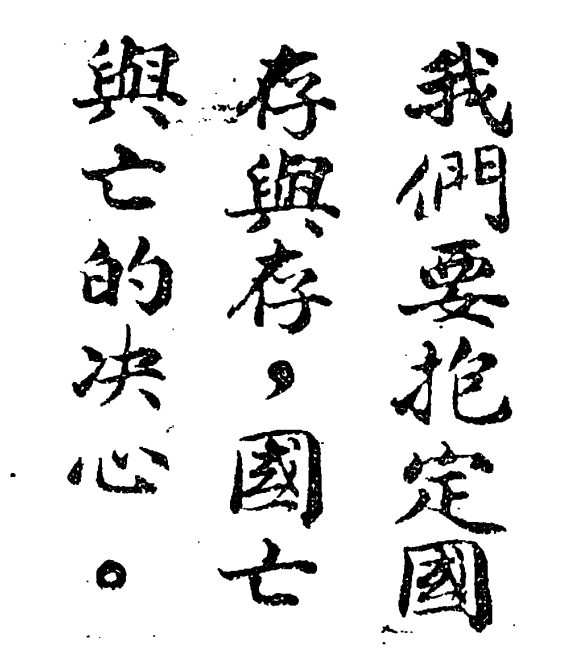 我們要抱定國
存與存，國亡
與亡的决心。